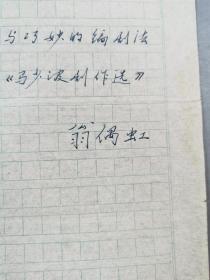 与巧妙的编剧法
《马少波剧作选》
翁偶虹